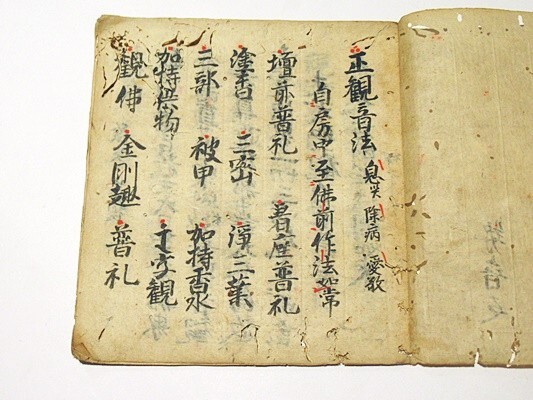 正観音法 息災 除病 愛敬
自房中至佛前作法如常
壇前普礼 着座普礼
塗香 三密 淨三業
三部 被甲 加持香水
加持供物 字観
觀佛 金剛起 普礼